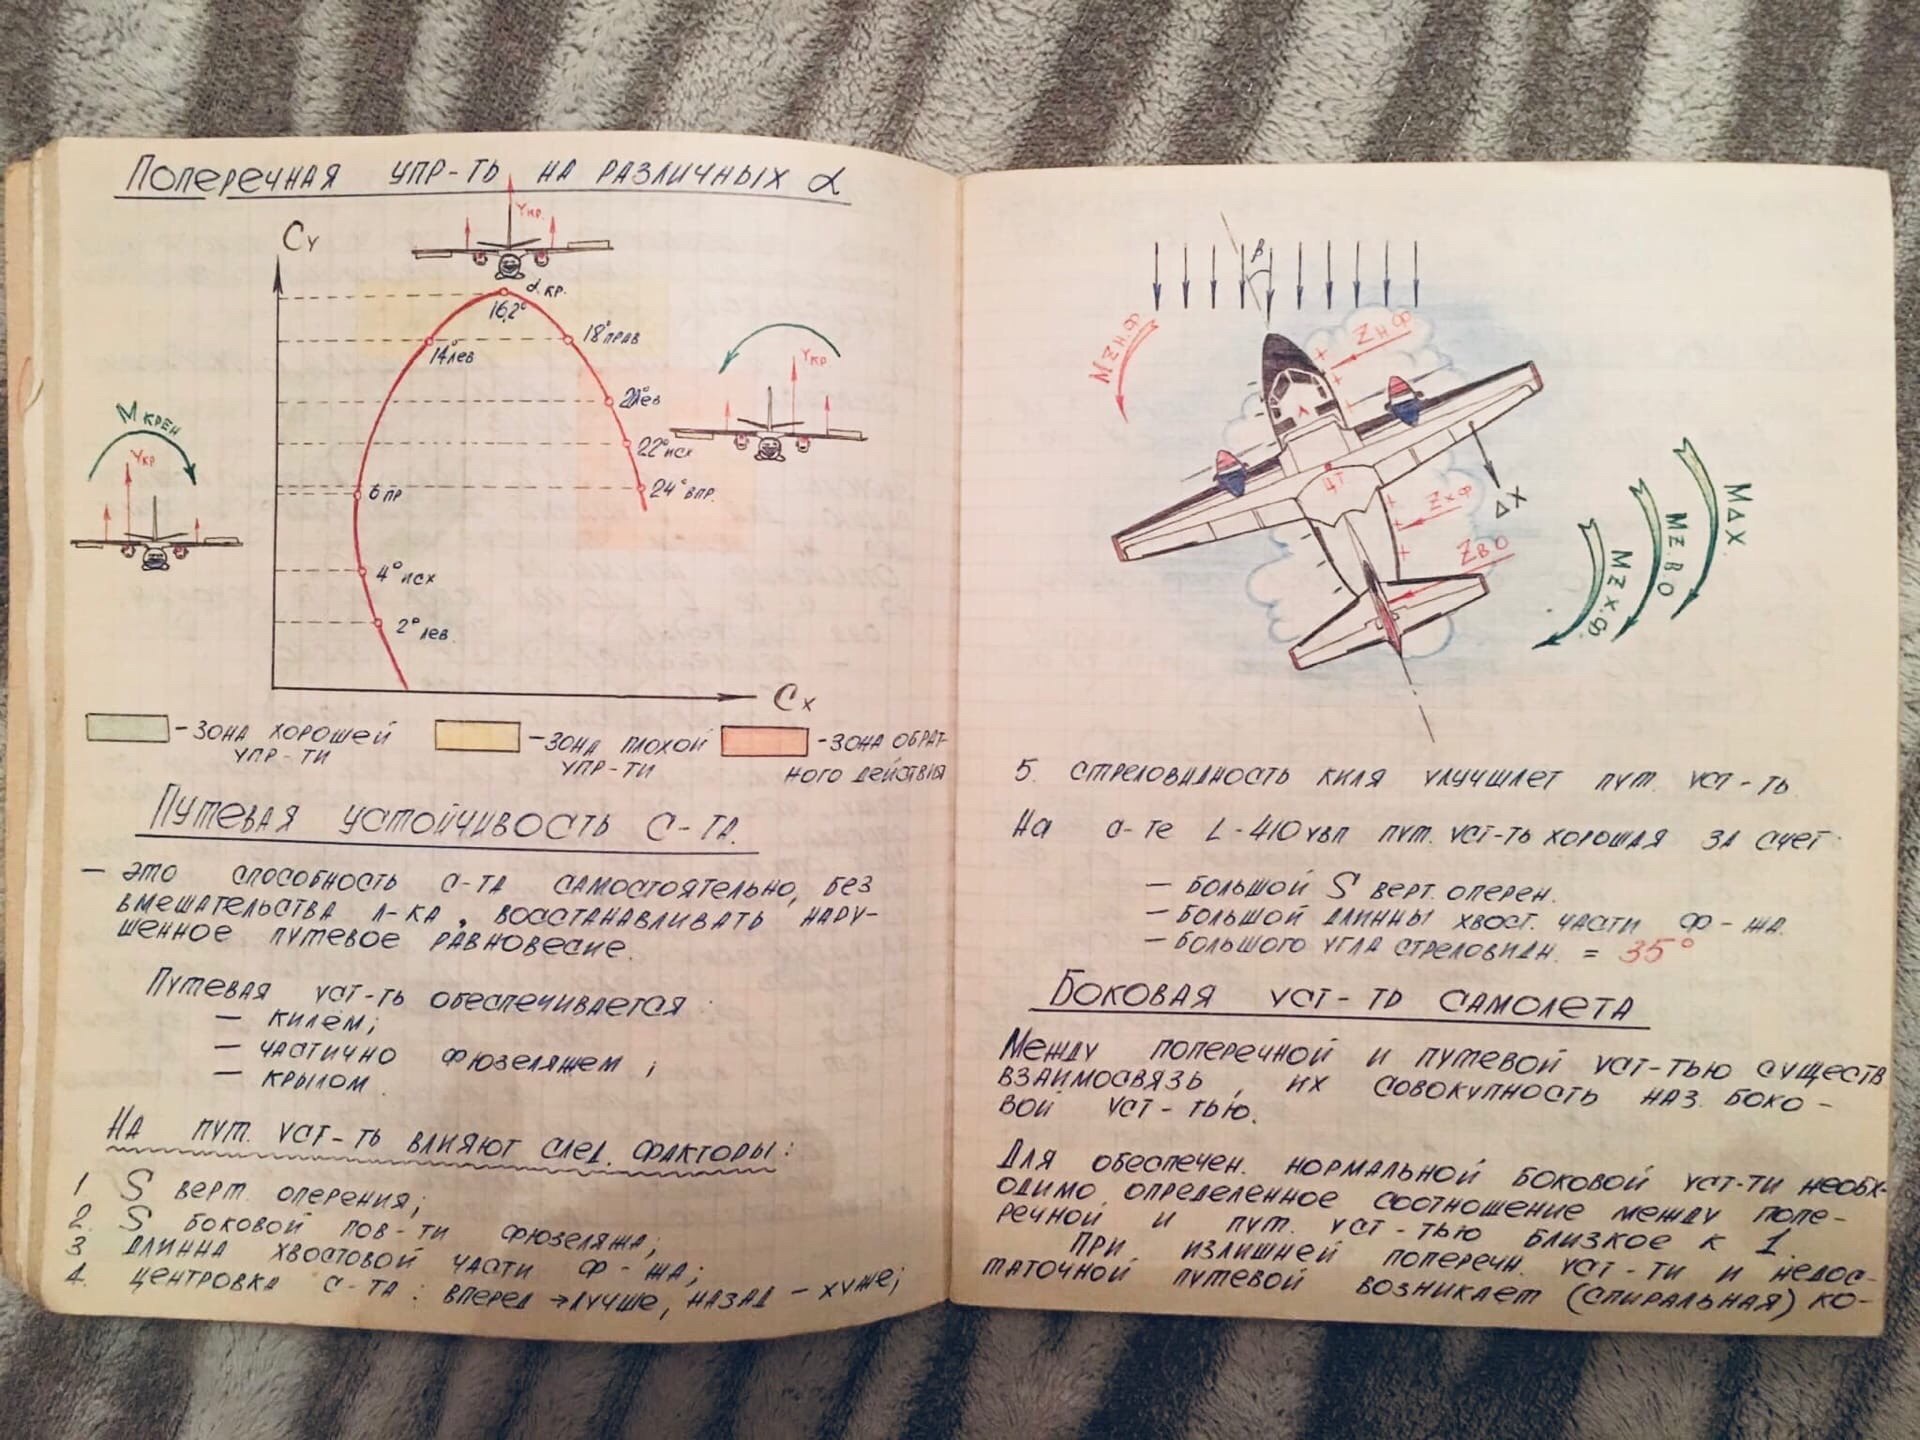 Поперечная упр-ть на различных α
Cу
Yкр.
α кр.
16,2°
14° лев
18° прав
Yкр
М крен
Yкр
21° лев
22° исх
24° впр.
6 пр
4° исх
2° лев.
Cх
- зона хорошей
упр-ти
- зона плохой
упр-ти
- зона обрат-
ного действия
Путевая устойчивость с-та.
— это способность с-та самостоятельно, без
вмешательства л-ка, восстанавливать нару-
шенное путевое равновесие.
Путевая уст-ть обеспечивается:
— килем;
— частично фюзеляжем;
— крылом.
На пут. уст-ть влияют след. факторы:
1 S верт. оперения;
2. S боковой пов-ти фюзеляжа;
3 длинна хвостовой части ф-жа;
4. центровка с-та: вперед → лучше, назад — хуже;
β
МZн.ф
Zнф
ЦТ
Zхф
ΔX
Zво
МΔX.
МZ.ВО
МZх.ф.
5. стреловидность киля улучшает пут. уст-ть.
На с-те L-410 увп пут. уст-ть хорошая за счет
— большой S верт. оперен.
— большой длинны хвост. части ф-жа.
— большого угла стреловидн. = 35°
Боковая уст-ть самолета
Между поперечной и путевой уст-тью существ
взаимосвязь, их совокупность наз. боко-
вой уст-тью.
Для обеспечен. нормальной боковой уст-ти необх-
одимо определенное соотношение между попе-
речной и пут. уст-тью близкое к 1.
При излишней поперечн. уст-ти и недос-
таточной путевой возникает (спиральная) ко-